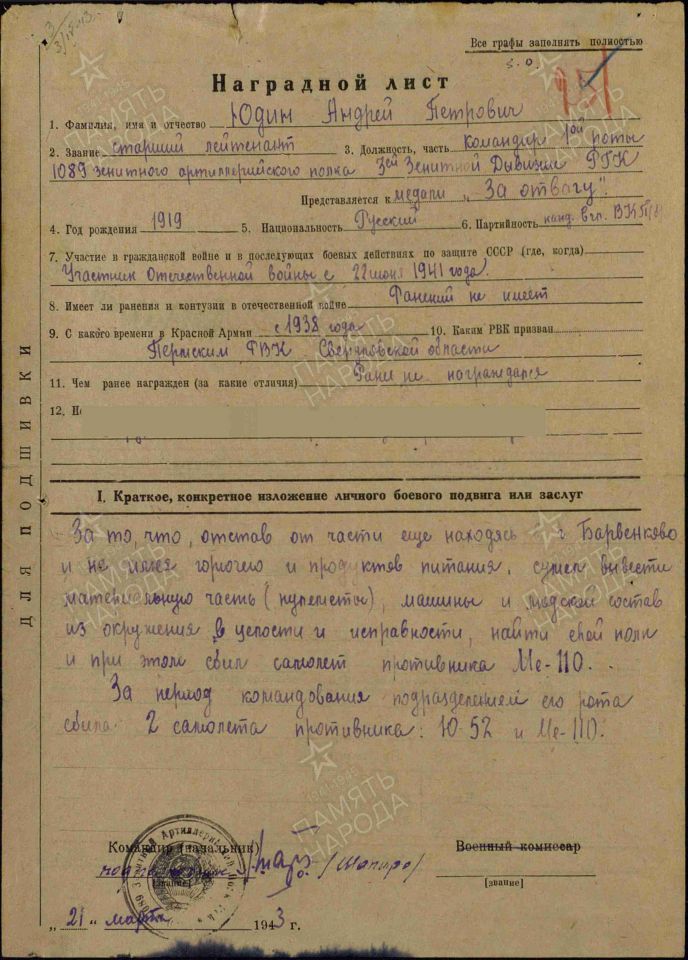 3
Все графы заполнять полностью
Наградной лист
1. Фамилия, имя и отчество Юдин Андрей Петрович
2. Звание старший лейтенант 3. Должность, часть командир 1ой роты
1089 зенитного артиллерийского полка 3ей Зенитной Дивизии РГК
Представляется к медали „За отвагу".
4. Год рождения 1919 5. Национальность Русский 6. Партийность канд. в чл. ВКП(б)
7. Участие в гражданской войне и в последующих боевых действиях по защите СССР (где, когда)
Участник Отечественной войны с 22 июня 1941 года.
8. Имеет ли ранения и контузии в отечественной войне Ранений не имеет
9. С какого времени в Красной Армии с 1938 года 10. Каким РВК призван
Пермским РВК Свердловской области
11. Чем ранее награжден (за какие отличия) Ранее не награждался
12.
ДЛЯ ПОДШИВКИ
I. Краткое, конкретное изложение личного боевого подвига или заслуг
За то, что, отстав от части еще находясь г Барвенково
и не имея горючего и продуктов питания, сумел вывести
материальную часть (пулеметы), машины и людской состав
из окружения в целости и исправности, найти свой полк
и при этом сбил самолет противника Ме-110.
За период командования подразделением его рота
сбила 2 самолета противника: Ю-52 и Ме-110.
Командир (начальник) (Шапиро) Военный комиссар
[звание] [звание]
„21" марта 1943 г.
ПАМЯТЬ НАРОДА
1941-1945